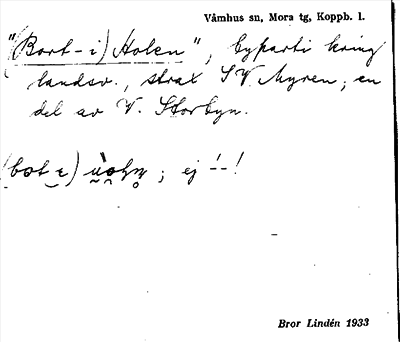 Våmhus sn, Mora tg, Koppb. l.
"(Bort-i) Holen", byparti kring
landsv., strax SV Myren; en
del av V. Storbyn.
; ej
Bror Lindén 1933